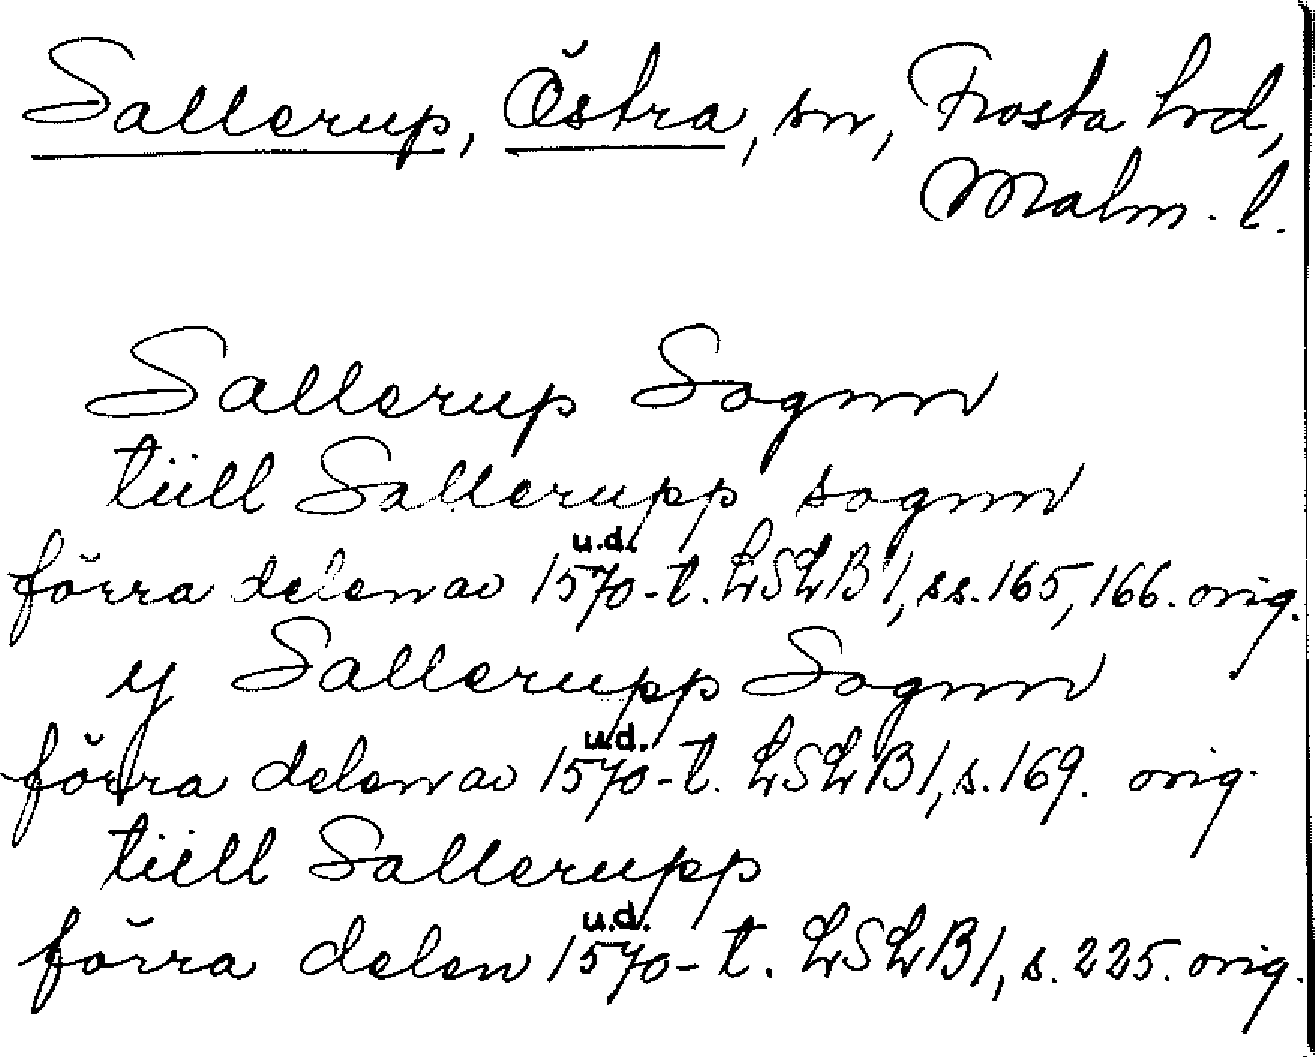 Sallerup, Östra, sn, Frosta hd,
Malm. l.
Sallerup Sognn
tiill Sallerupp sognn
u.d.
förra delen av 1570-t. LSLB 1, ss. 165, 166. orig.
y Sallerupp Sognn
u.d.
förra delen av 1570-t. LSLB 1, s. 169. orig.
tiill Sallerupp
u.d.
förra delen 1570-t. LSLB 1, s. 225. orig.